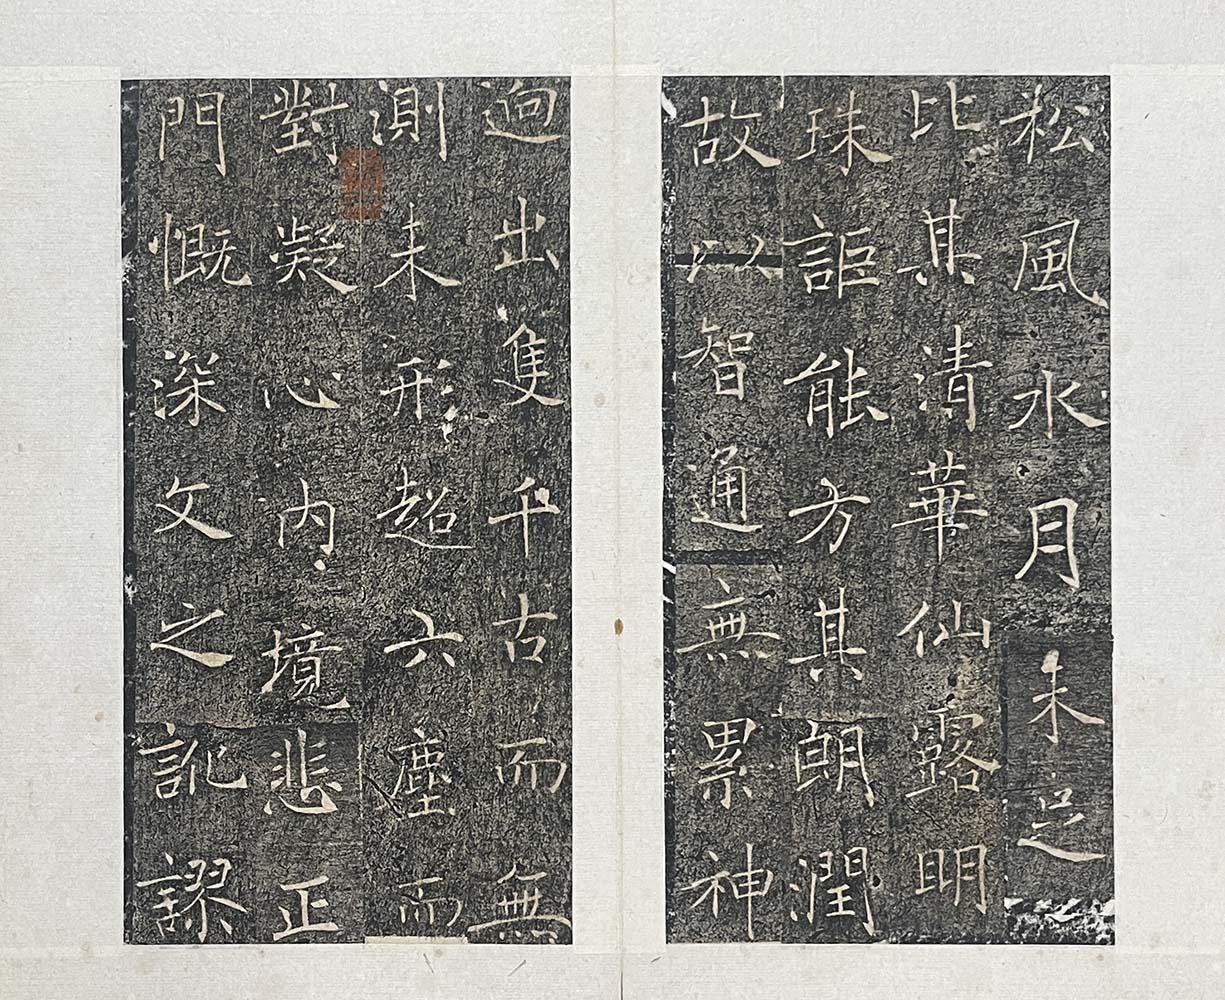 松風水月未足
比其清華仙露明
珠詎能方其朗潤
故以智通無累神
迥出隻千古而無
測未形超六塵而
對凝心内境悲正
門慨深文之訛謬